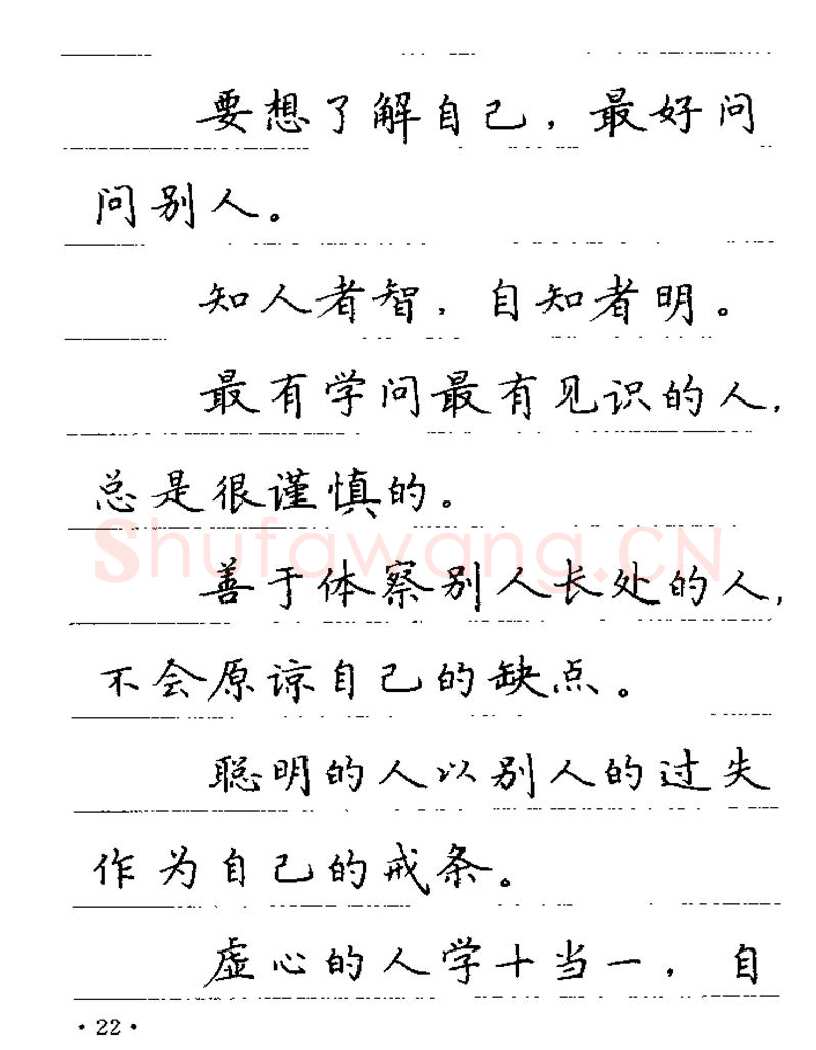 要想了解自己，最好问
问别人。
知人者智，自知者明。
最有学问最有见识的人，
总是很谨慎的。
Shufawang.CN
善于体察别人长处的人，
不会原谅自己的缺点。
聪明的人以别人的过失
作为自己的戒条。
虚心的人学十当一，自
·22·